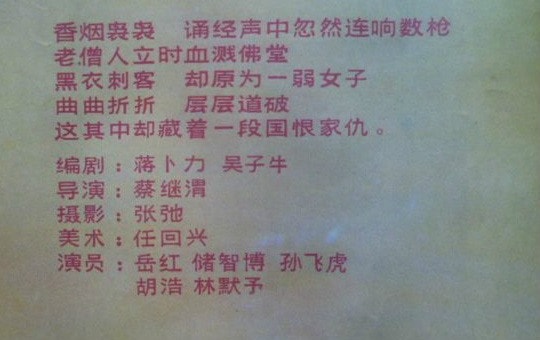 香烟袅袅　诵经声中忽然连响数枪
老僧人立时血溅佛堂
黑衣刺客　却原为一弱女子
曲曲折折　层层道破
这其中却藏着一段国恨家仇。
编剧：蒋卜力 吴子牛
导演：蔡继渭
摄影：张弛
美术：任回兴
演员：岳红 储智博 孙飞虎
胡浩 林默予